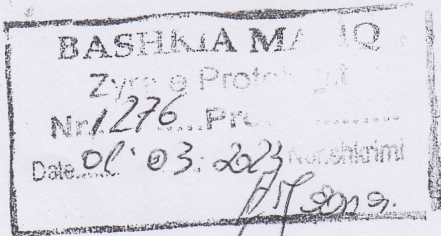 BASHKIA MALIQ
Zyra e Protokollit
Nr. 1276 Prot.
Date 01.03.2023 Nënshkrimi